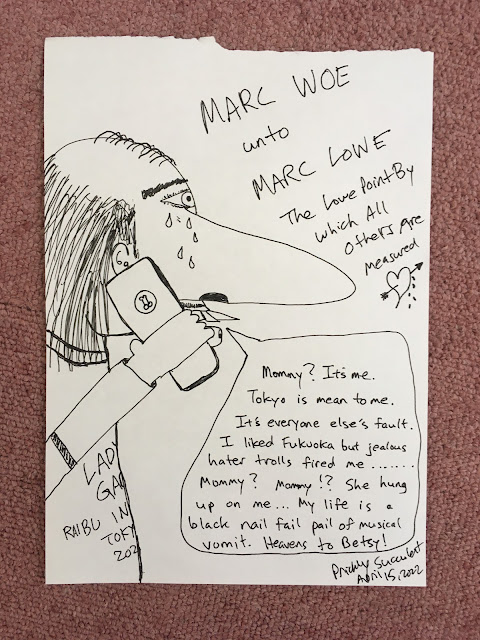 MARC WOE
unto
MARC LOWE
The Lowe Point By
which All
Others Are
measured
Mommy? It's me.
Tokyo is mean to me.
It's everyone else's fault.
I liked Fukuoka but jealous
hater trolls fired me.......
Mommy? Mommy!? She hung
up on me... My life is a
black nail fail pail of musical
vomit. Heavens to Betsy!
LADY
GA
RAIBU IN
TOKY
202
Prickly Succulent
April 15, 2022